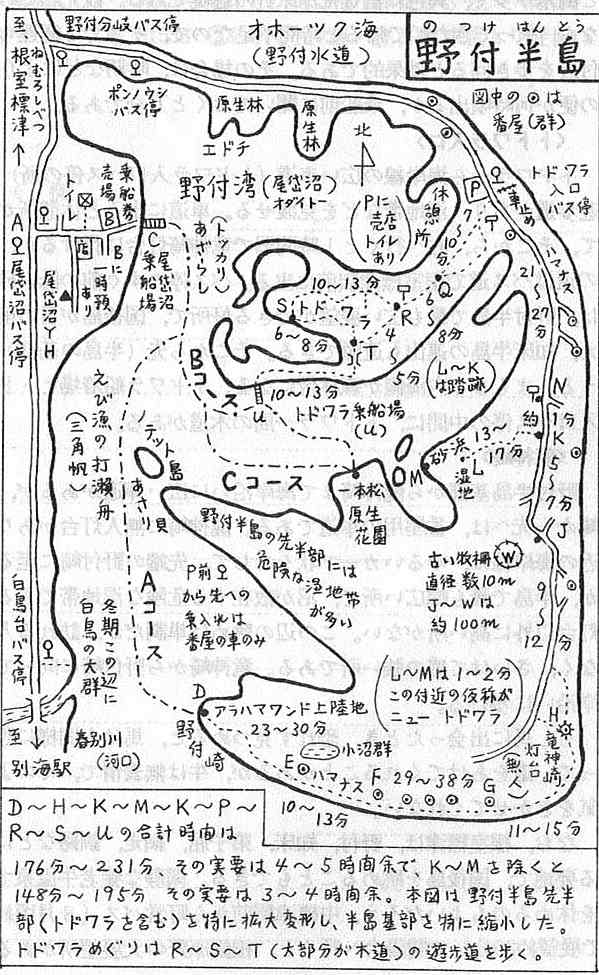 のつけはんとう
野付半島
図中の⊙は
番屋(群)
至根室標津
ねむろしべつ
野付分岐バス停
オホーツク海
(野付水道)
ポンノウシ
バス停
原生林
原生林
エドチ
北
野付湾(尾岱沼)
オダイトー
Pに
売店
トイレ
あり
休憩所
P
車止め
トドワラ
入口
バス停
乗船券
売場
トイレ
B
B
店
Bに時刻
あり
A
尾岱沼バス停
尾岱沼YH
C
尾岱沼
乗船場
(トッカリ)
あざらし
7~10分
T
ハマナス
21~27分
10~13分
S
トドワラ
7
R
Q
6~8分
6~8分
4
5分
U
10~13分
トドワラ乗船場
(U)
L~K
は踏跡
N
1分
約
K
5~7分
J
13~17分
L
砂浜
湿地
M
Bコース
Cコース
Aコース
えび漁の打瀬舟
(三角帆)
テット島
あさり貝
本松
原生
花園
野付半島の先半部には
危険な湿地帯
が多い
P前
から先への
乗入れは
番屋の車のみ
古い牧柵
直径数10m
J~Wは
約100m
W
9~12分
L~Mは1~2分
この付近の仮称が
ニュートドワラ
白鳥台バス停
冬期この辺に
白鳥の大群
至別海駅
春別川
(河口)
D
アラハマワンド上陸地
23~30分
野付崎
小沼群
E
ハマナス
F
29~38分
G
H
竜神崎
灯台
(無人)
10~
13分
11~15分
D~H~K~M~K~P~
R~S~Uの合計時間は
176分~231分、その実要は4~5時間余で、K~Mを除くと
148分~195分、その実要は3~4時間余。本図は野付半島先半
部(トドワラを含む)を特に拡大変形し、半島基部を特に縮小した。
トドワラめぐりはR~S~T(大部分が木道)の遊歩道を歩く。